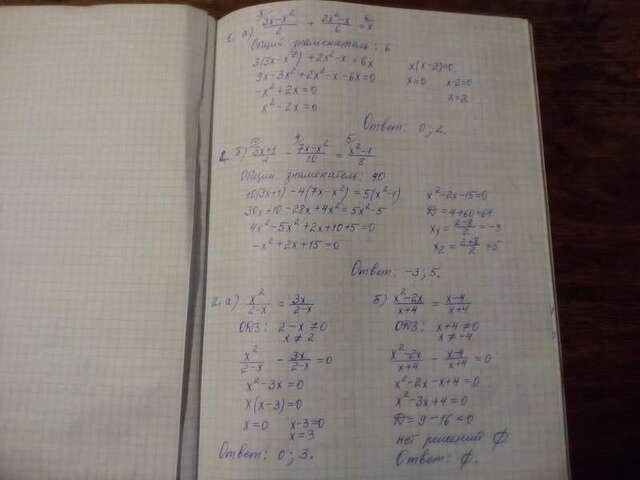 1. а) 3x-x²/2 + 2x²-x/6 = x
Общий знаменатель: 6
3(3x-x²) + 2x²-x = 6x
9x-3x²+2x²-x-6x=0
-x²+2x=0
x²-2x=0
x(x-2)=0
x=0 x-2=0
x=2
Ответ: 0; 2.
б) 3x+1/4 - 7x-x²/10 = x²-1/8
Общий знаменатель: 40
10(3x+1)-4(7x-x²)=5(x²-1)
30x+10-28x+4x²=5x²-5
4x²-5x²+2x+10+5=0
-x²+2x+15=0
x²-2x-15=0
D=4+60=64
x₁=2-8/2=-3
x₂=2+8/2=5
Ответ: -3; 5.
2. а) x²/2-x = 3x/2-x
ОДЗ: 2-x≠0
x≠2
x²/2-x - 3x/2-x =0
x²-3x=0
x(x-3)=0
x=0 x-3=0
x=3
Ответ: 0; 3.
б) x²-2x/x+4 = x-4/x+4
ОДЗ: x+4≠0
x≠-4
x²-2x/x+4 - x-4/x+4 =0
x²-2x-x+4=0
x²-3x+4=0
D=9-16<0
нет решений ∅
Ответ: ∅.